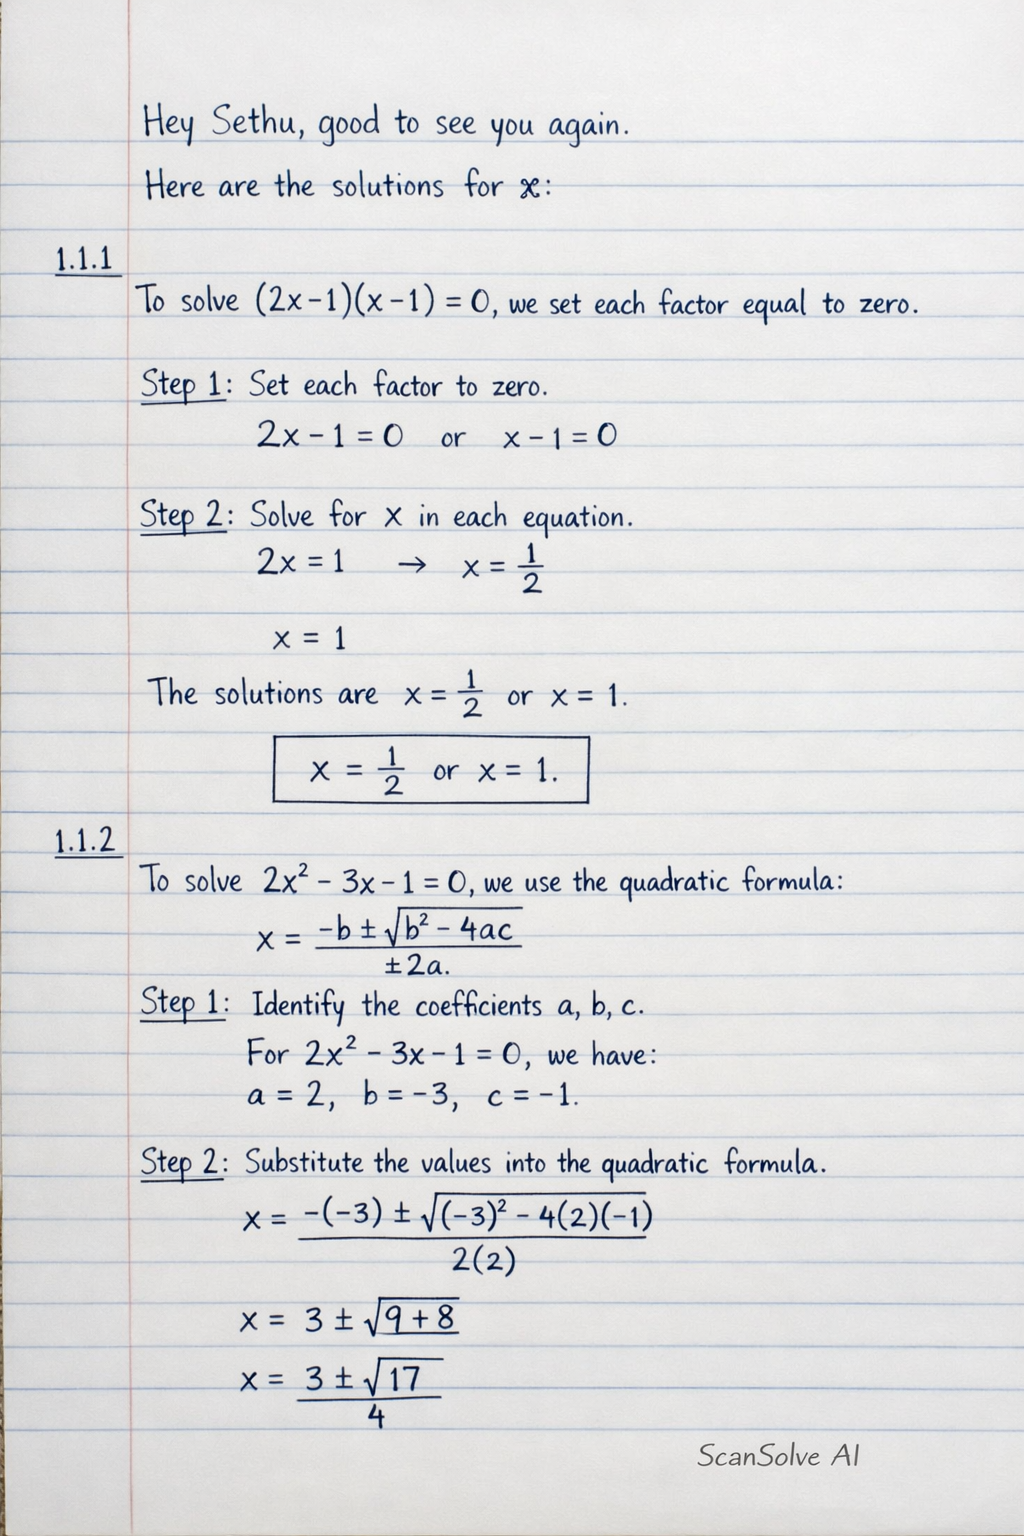 Hey Sethu, good to see you again.
Here are the solutions for x:
1.1.1
To solve (2x-1)(x-1) = 0, we set each factor equal to zero.
Step 1: Set each factor to zero.
2x - 1 = 0 or x - 1 = 0
Step 2: Solve for x in each equation.
2x = 1 → x = 1/2
x = 1
The solutions are x = 1/2 or x = 1.
x = 1/2 or x = 1.
1.1.2
To solve 2x² - 3x - 1 = 0, we use the quadratic formula:
x = -b ± √b² - 4ac
±2a.
Step 1: Identify the coefficients a, b, c.
For 2x² - 3x - 1 = 0, we have:
a = 2, b = -3, c = -1.
Step 2: Substitute the values into the quadratic formula.
x = -(-3) ± √(-3)² - 4(2)(-1)
2(2)
x = 3 ± √9 + 8
x = 3 ± √17
4
ScanSolve AI